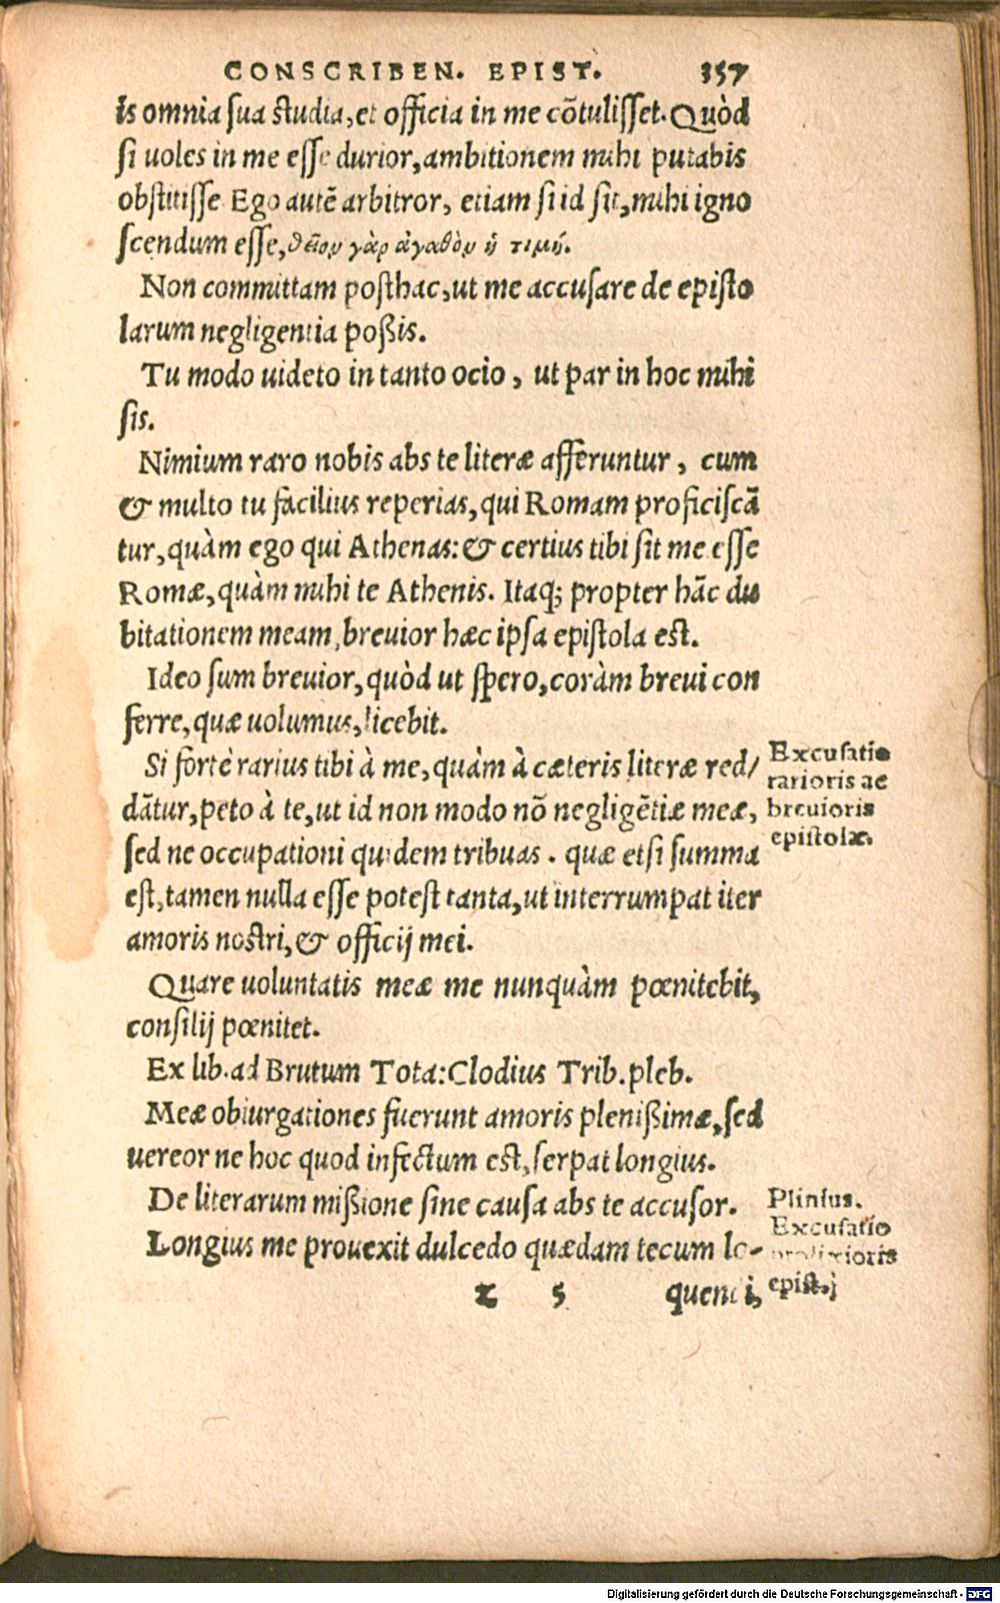 CONSCRIBEN. EPIST. 357
is omnia sua studia, et officia in me cõtulisset. Quòd
si uoles in me esse durior, ambitionem mihi putabis
obstitisse Ego autẽ arbitror, etiam si id sit, mihi igno
scendum esse, θεῖον γὰρ ἀγαθὸν ἡ τιμή.
Non committam posthac, ut me accusare de episto
larum negligentia poßis.
Tu modo uideto in tanto ocio, ut par in hoc mihi
sis.
Nimium raro nobis abs te literæ afferuntur, cum
& multo tu facilius reperias, qui Romam proficiscã
tur, quàm ego qui Athenas: & certius tibi sit me esse
Romæ, quàm mihi te Athenis. Itaq; propter hãc du
bitationem meam, breuior hæc ipsa epistola est.
Ideo sum breuior, quòd ut spero, coràm breui con
ferre, quæ uolumus, licebit.
Si fortè rarius tibi à me, quàm à cæteris literæ red/
dãtur, peto à te, ut id non modo nõ negligẽtiæ meæ,
sed ne occupationi quidem tribuas. quæ etsi summa
est, tamen nulla esse potest tanta, ut interrumpat iter
amoris nostri, & officij mei.
Excusatio
rarioris ac
breuioris
epistolæ.
Quare uoluntatis meæ me nunquàm pœnitebit,
consilij pœnitet.
Ex lib. ad Brutum Tota: Clodius Trib. pleb.
Meæ obiurgationes fuerunt amoris plenißimæ, sed
uereor ne hoc quod infectum est, serpat longius.
De literarum mißione sine causa abs te accusor.
Longius me prouexit dulcedo quædam tecum lo-
Plinius.
Excusatio
prolixioris
epist.
z 5 quendi,
Digitalisierung gefördert durch die Deutsche Forschungsgemeinschaft - DFG